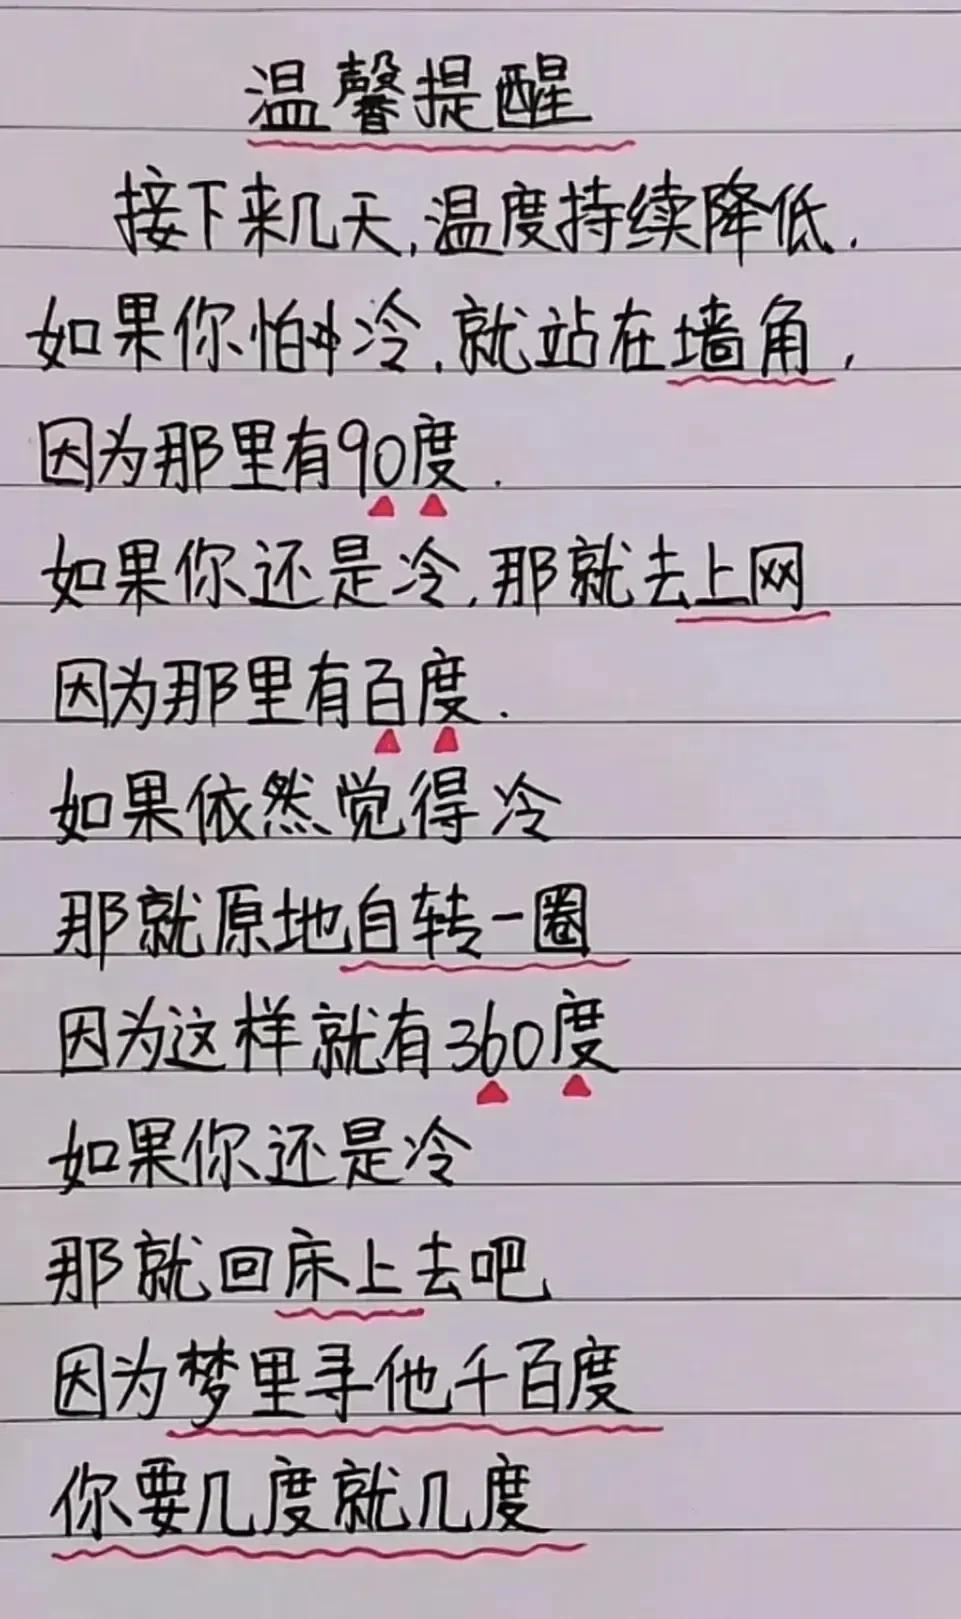 温馨提醒
接下来几天,温度持续降低.
如果你怕冷,就站在墙角,
因为那里有90度.
如果你还是冷,那就去上网
因为那里有百度.
如果依然觉得冷
那就原地自转一圈
因为这样就有360度
如果你还是冷
那就回床上去吧
因为梦里寻他千百度
你要几度就几度